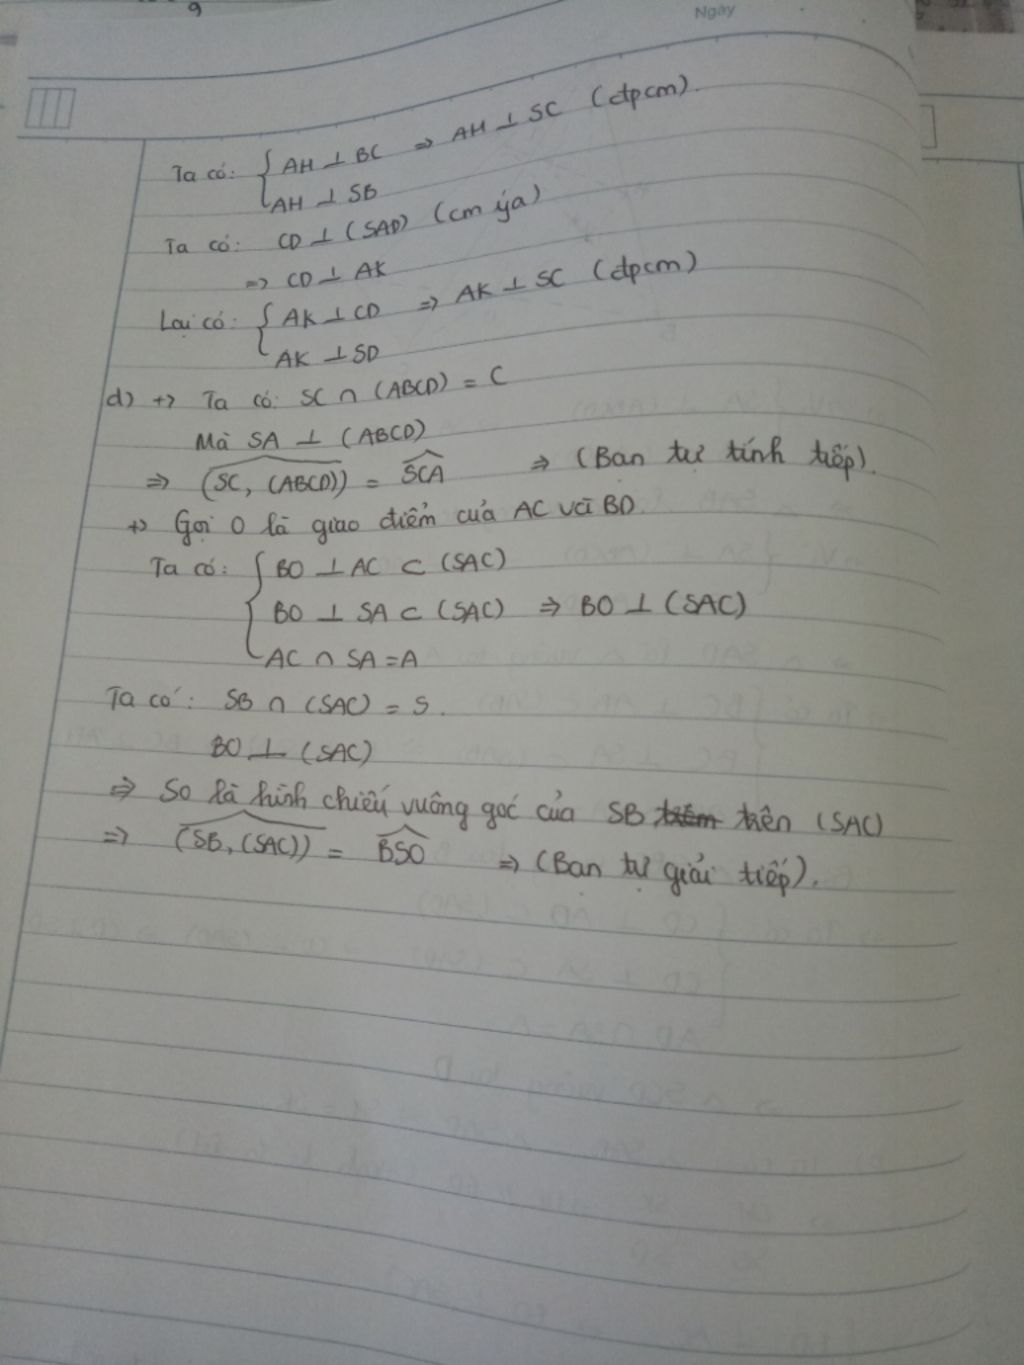 9
Ngày
Ta có: { AH ⊥ BC ⇒ AH ⊥ SC (đpcm).
AH ⊥ SB
Ta có: CD ⊥ (SAD) (cm ýa)
⇒ CD ⊥ AK
Lại có: { AK ⊥ CD ⇒ AK ⊥ SC (đpcm)
AK ⊥ SD
d) +> Ta có: SC ∩ (ABCD) = C
Mà SA ⊥ (ABCD)
⇒ (SC, (ABCD)) = SCA ⇒ (Bạn tự tính tiếp).
+> Gọi O là giao điểm của AC và BD.
Ta có: { BO ⊥ AC ⊂ (SAC)
BO ⊥ SA ⊂ (SAC) ⇒ BO ⊥ (SAC)
AC ∩ SA = A
Ta có: SB ∩ (SAC) = S.
BO ⊥ (SAC)
⇒ SO là hình chiếu vuông góc của SB trên (SAC)
⇒ (SB, (SAC)) = BSO ⇒ (Bạn tự giải tiếp).